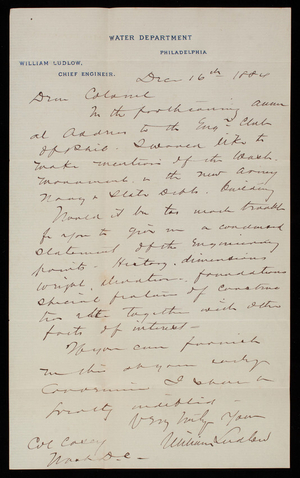 WATER DEPARTMENT
PHILADELPHIA
WILLIAM LUDLOW,
CHIEF ENGINEER.
Dec 16th 1884
Dear Colonel
In the forthcoming annu
al Address to the Eng'rs Club
of Phil. I would like to
make mention of the Wash.
Monument & the new Army
Navy & State Depts. Building
Would it be too much trouble
for you to give me a condensed
statement of the Engineering
points - History, dimensions
weight, elevation, foundations
special features of construc
tion etc together with other
facts of interest -
If you can furnish
me this at your early
convenience I shall be
greatly indebted -
Very truly Yours
William Ludlow
Col Casey
Wash D.C -